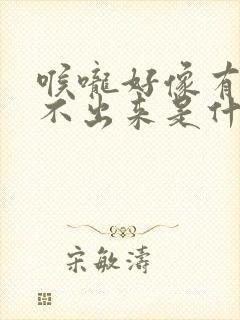 喉嚨好像有
不出来是什
宋敏濤